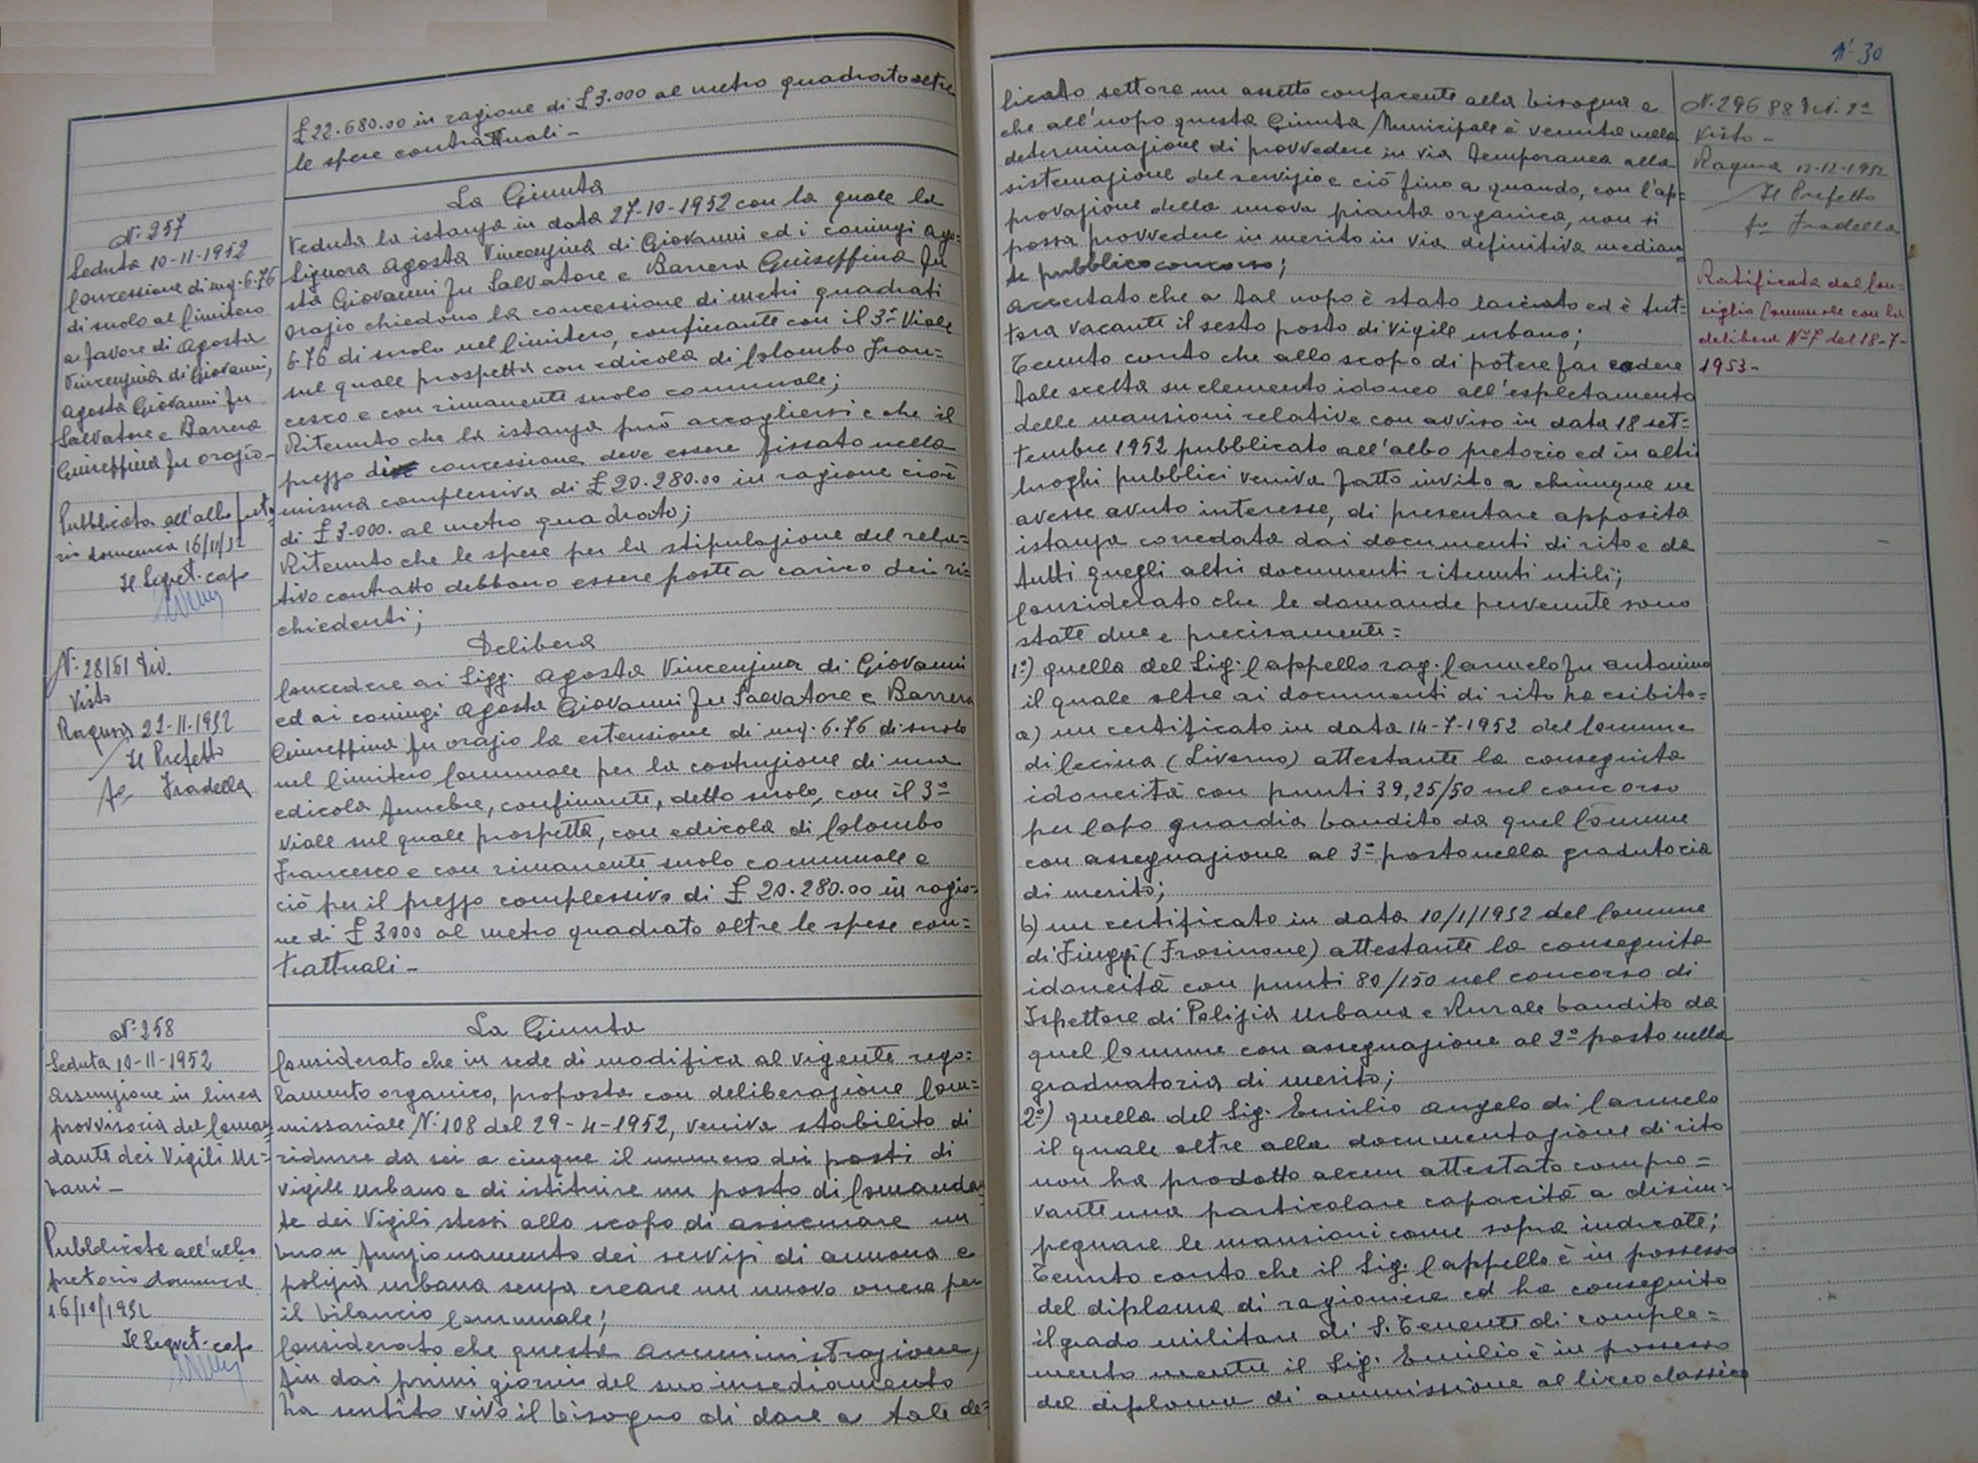 £ 22.680.00 in ragione di £ 3.000 al metro quadrato oltre
le spese contrattuali -
N. 257
Seduta 10-11-1952
Concessione di mq. 6.76
di suolo al Cimitero
a favore di Agosta
Vincenzina di Giovanni,
Agosta Giovanni fu
Salvatore e Barrera
Giuseppina fu Orazio -
Pubblicata all'albo preto-
rio domenica 16/11/52
Il Segret. capo
N. 28161 Div.
Visto
Ragusa 21-11-1952
Il Prefetto
fo Fradella
La Giunta
Veduta la istanza in data 27-10-1952 con la quale la
Signora Agosta Vincenzina di Giovanni ed i coniugi Ago=
sta Giovanni fu Salvatore e Barrera Giuseppina fu
Orazio chiedono la concessione di metri quadrati
6.76 di suolo nel Cimitero, confinante con il 3° Viale
sul quale prospetta con edicola di Colombo Fran=
cesco e con rimanente suolo comunale;
Ritenuto che la istanza può accogliersi e che il
prezzo di concessione deve essere fissato nella
misura complessiva di £ 20.280.00 in ragione cioè
di £ 3.000. al metro quadrato;
Ritenuto che le spese per la stipulazione del rela=
tivo contratto debbano essere poste a carico dei ri=
chiedenti;
Delibera
Concedere ai Sigg. Agosta Vincenzina di Giovanni
ed ai coniugi Agosta Giovanni fu Salvatore e Barrera
Giuseppina fu Orazio la estensione di mq. 6.76 di suolo
nel Cimitero Comunale per la costruzione di una
edicola funebre, confinante, detto suolo, con il 3°
viale sul quale prospetta, con edicola di Colombo
Francesco e con rimanente suolo comunale e
ciò per il prezzo complessivo di £ 20.280.00 in ragio=
ne di £ 3000 al metro quadrato oltre le spese con=
trattuali -
N. 258
Seduta 10-11-1952
Assunzione in linea
provvisoria del Coman
dante dei Vigili Ur=
bani -
Pubblicata all'albo
pretorio domenica
16/11/1952
Il Segret. capo
La Giunta
Considerato che in sede di modifica al vigente rego=
lamento organico, proposta con deliberazione Com=
missariale N. 108 del 29-4-1952, veniva stabilito di
ridurre da sei a cinque il numero dei posti di
vigile urbano e di istituire un posto di Comandan
te dei Vigili stessi allo scopo di assicurare un
buon funzionamento dei servizi di annona e
polizia urbana senza creare un nuovo onere per
il bilancio Comunale;
Considerato che questa Amministrazione,
fin dai primi giorni del suo insediamento
ha sentito vivo il bisogno di dare a tale de=
N. 30
licato settore un assetto confacente alla bisogna e
che all'uopo questa Giunta Municipale è venuta nella
determinazione di provvedere in via temporanea alla
sistemazione del servizio e ciò fino a quando, con l'ap=
provazione della nuova pianta organica, non si
possa provvedere in merito in via definitiva median
te pubblico concorso;
Accertato che a tal uopo è stato lasciato ed è tut=
tora vacante il sesto posto di vigile urbano;
Tenuto conto che allo scopo di potere far cadere
tale scelta su elemento idoneo all'espletamento
delle mansioni relative con avviso in data 18 set=
tembre 1952 pubblicato all'albo pretorio ed in altri
luoghi pubblici veniva fatto invito a chiunque ne
avesse avuto interesse, di presentare apposita
istanza corredata dai documenti di rito e da
tutti quegli altri documenti ritenuti utili;
Considerato che le domande pervenute sono
state due e precisamente:
1°) quella del Sig. Cappello rag. Carmelo fu Antonino
il quale oltre ai documenti di rito ha esibito=
a) un certificato in data 14-7-1952 del Comune
di Cecina (Livorno) attestante la conseguita
idoneità con punti 39,25/50 nel concorso
per Capo guardia bandito da quel Comune
con assegnazione al 3° posto nella gradutoria
di merito;
b) un certificato in data 10/1/1952 del Comune
di Fiuggi (Frosinone) attestante la conseguita
idoneità con punti 80/150 nel concorso di
Ispettore di Polizia Urbana e Rurale bandito da
quel Comune con assegnazione al 2° posto nella
graduatoria di merito;
2°) quella del Sig. Emilio Angelo di Carmelo
il quale oltre alla documentazione di rito
non ha prodotto alcun attestato compro=
vante una particolare capacità a disim=
pegnare le mansioni come sopra indicate;
Tenuto conto che il Sig. Cappello è in possesso
del diploma di ragioniere ed ha conseguito
il grado militare di S. Tenente di comple=
mento mentre il Sig. Emilio è in possesso
del diploma di ammissione al liceo classico
N. 29688 Div. 2a
Visto -
Ragusa 12-12-1952
Il Prefetto
fo Fradella
Ratificata dal Con=
siglio Comunale con la
delibera N° 7 del 18-7-
1953 -